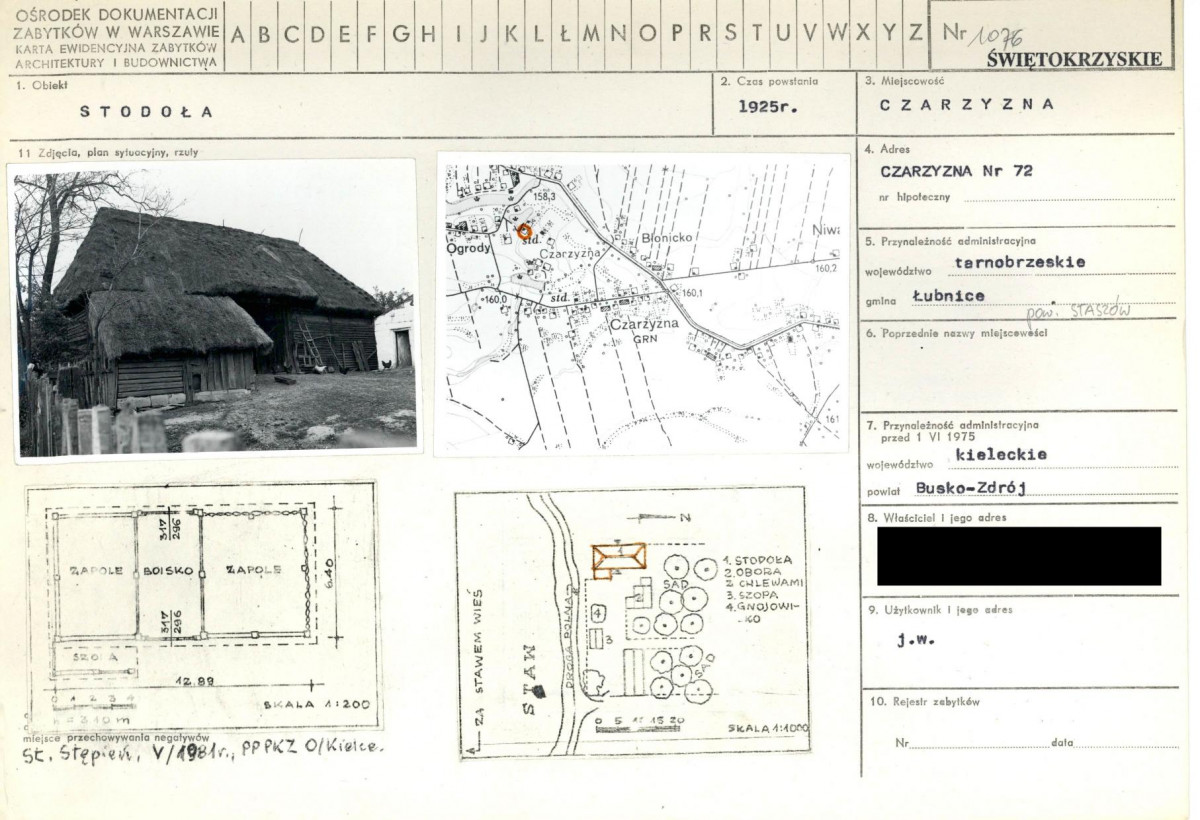 OŚRODEK DOKUMENTACJI
ZABYTKÓW W WARSZAWIE
KARTA EWIDENCYJNA ZABYTKÓW
ARCHITEKTURY I BUDOWNICTWA
A B C D E F G H I J K L Ł M N O P R S T U V W X Y Z
Nr 1076
ŚWIĘTOKRZYSKIE
1. Obiekt
STODOŁA
2. Czas powstania
1925r.
3. Miejscowość
CZARZYZNA
4. Adres
CZARZYZNA Nr 72
nr hipoteczny
5. Przynależność administracyjna
województwo tarnobrzeskie
gmina Łubnice
pow. STASZÓW
6. Poprzednie nazwy miejscowości
7. Przynależność administracyjna
przed 1 VI 1975
województwo kieleckie
powiat Busko-Zdrój
8. Właściciel i jego adres
9. Użytkownik i jego adres
j.w.
10. Rejestr zabytków
Nr data
11 Zdjęcia, plan sytuacyjny, rzuty
158,3
Ogrody
std.
Czarzyzna
Błonicko
Niwa
160,2
160,0
std.
160,1
Czarzyzna
GRN
161
ZAPOLE
BOISKO
ZAPOLE
317
296
317
296
6.40
SZOPA
12.89
0 1 2 3 4
SKALA 1:200
h = 3.10 m
N
1. STODOŁA
2. OBORA
Z CHLEWAMI
3. SZOPA
4. GNOJOWI-
-KO
1
2
3
4
SAD
SAD
ZA STAWEM WIEŚ
STAW
DROGA POLNA
0 5 10 15 20
SKALA 1:1000
miejsce przechowywania negatywów
St. Stępień, V/1981r., PP PKZ O/Kielce.